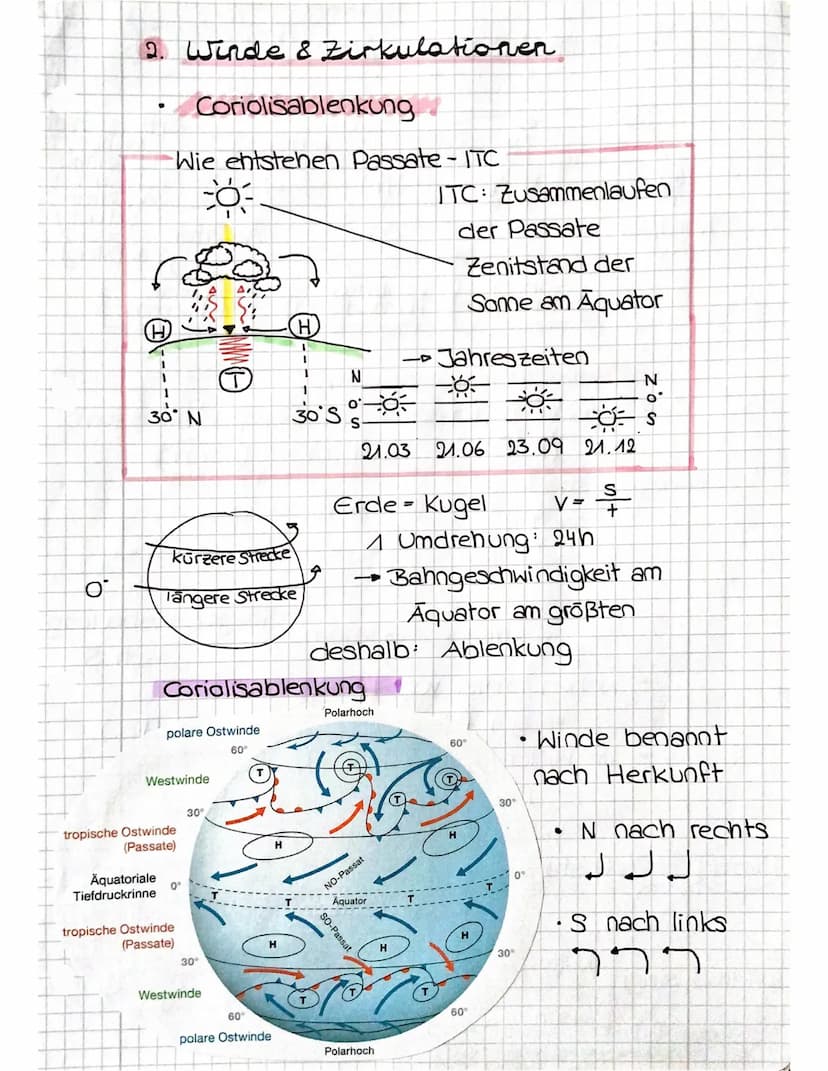 2. Winde & Zirkulationen
• Coriolisablenkung
Wie entstehen Passate - ITC
ITC: Zusammenlaufen
der Passate
Zenitstand der
Sonne am Äquator
H
H
T
30° N
30° S
→ Jahreszeiten
N
0°
S
N
0°
S
21.03 21.06 23.09 21.12
Erde = Kugel
V = s/t
1 Umdrehung: 24h
→ Bahngeschwindigkeit am
Äquator am größten
kürzere Strecke
0°
längere Strecke
deshalb: Ablenkung
Coriolisablenkung
Polarhoch
polare Ostwinde
60°
60°
Westwinde
T
T
T
T
30°
30°
tropische Ostwinde
(Passate)
H
H
NO-Passat
Äquatoriale
Tiefdruckrinne
0°
0°
T
T
Äquator
T
T
tropische Ostwinde
(Passate)
SO-Passat
H
H
H
30°
30°
Westwinde
T
T
T
60°
60°
polare Ostwinde
Polarhoch
• Winde benannt
nach Herkunft
• N nach rechts
• S nach links